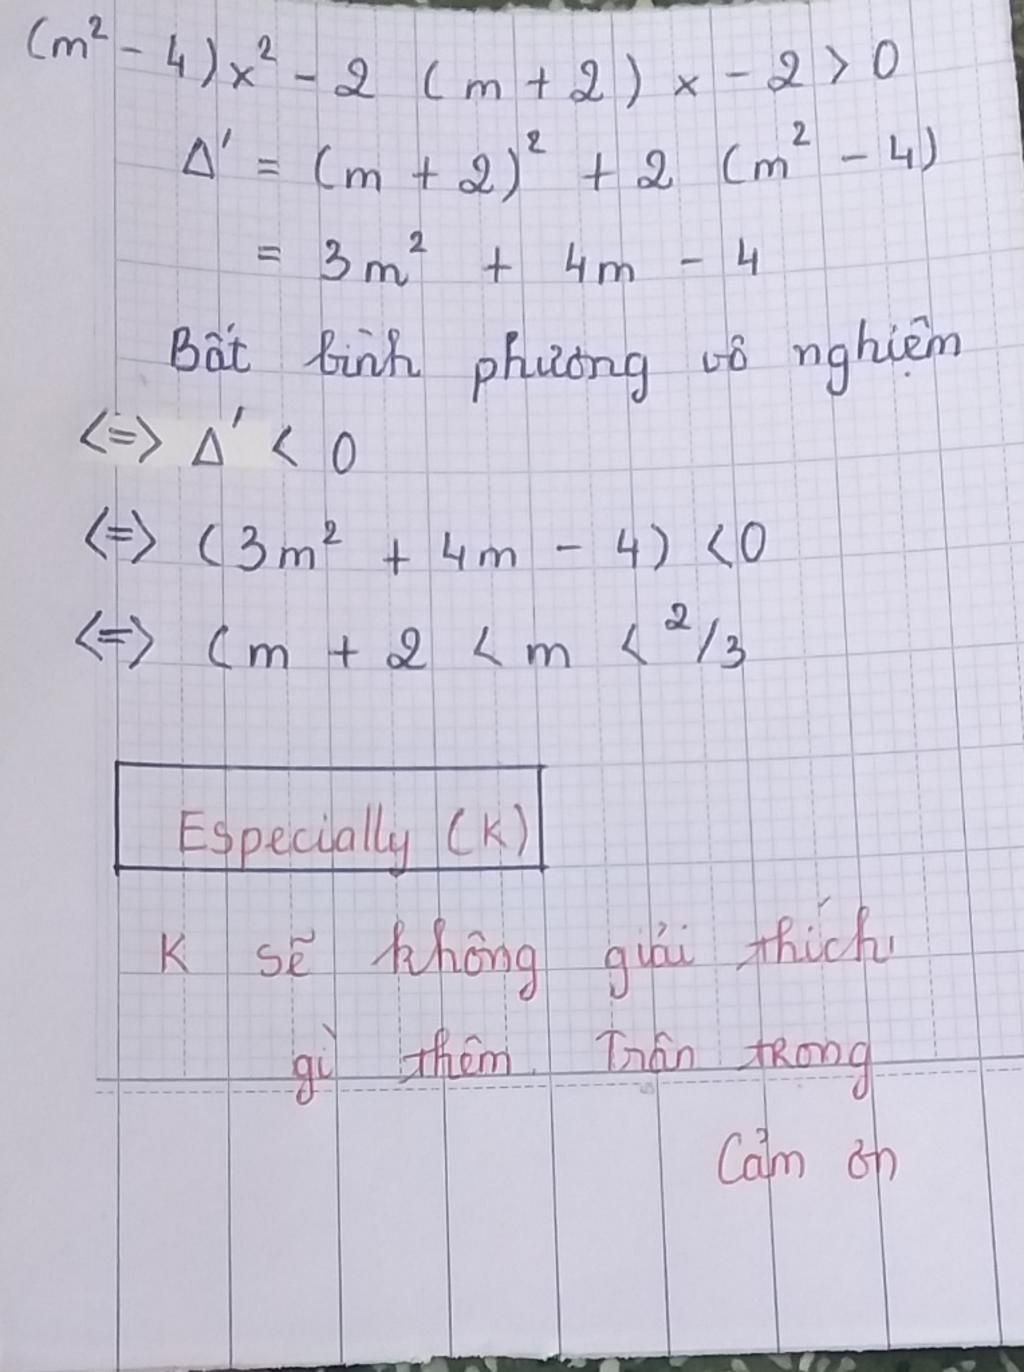 (m² - 4)x² - 2 (m + 2) x - 2 > 0
Δ' = (m + 2)² + 2 (m² - 4)
= 3m² + 4m - 4
Bất bình phương vô nghiệm
<=> Δ' < 0
<=> (3m² + 4m - 4) < 0
<=> (m + 2 < m < 2/3
Especially (K)
K sẽ không giải thích
gì thêm. Trân trọng
Cảm ơn